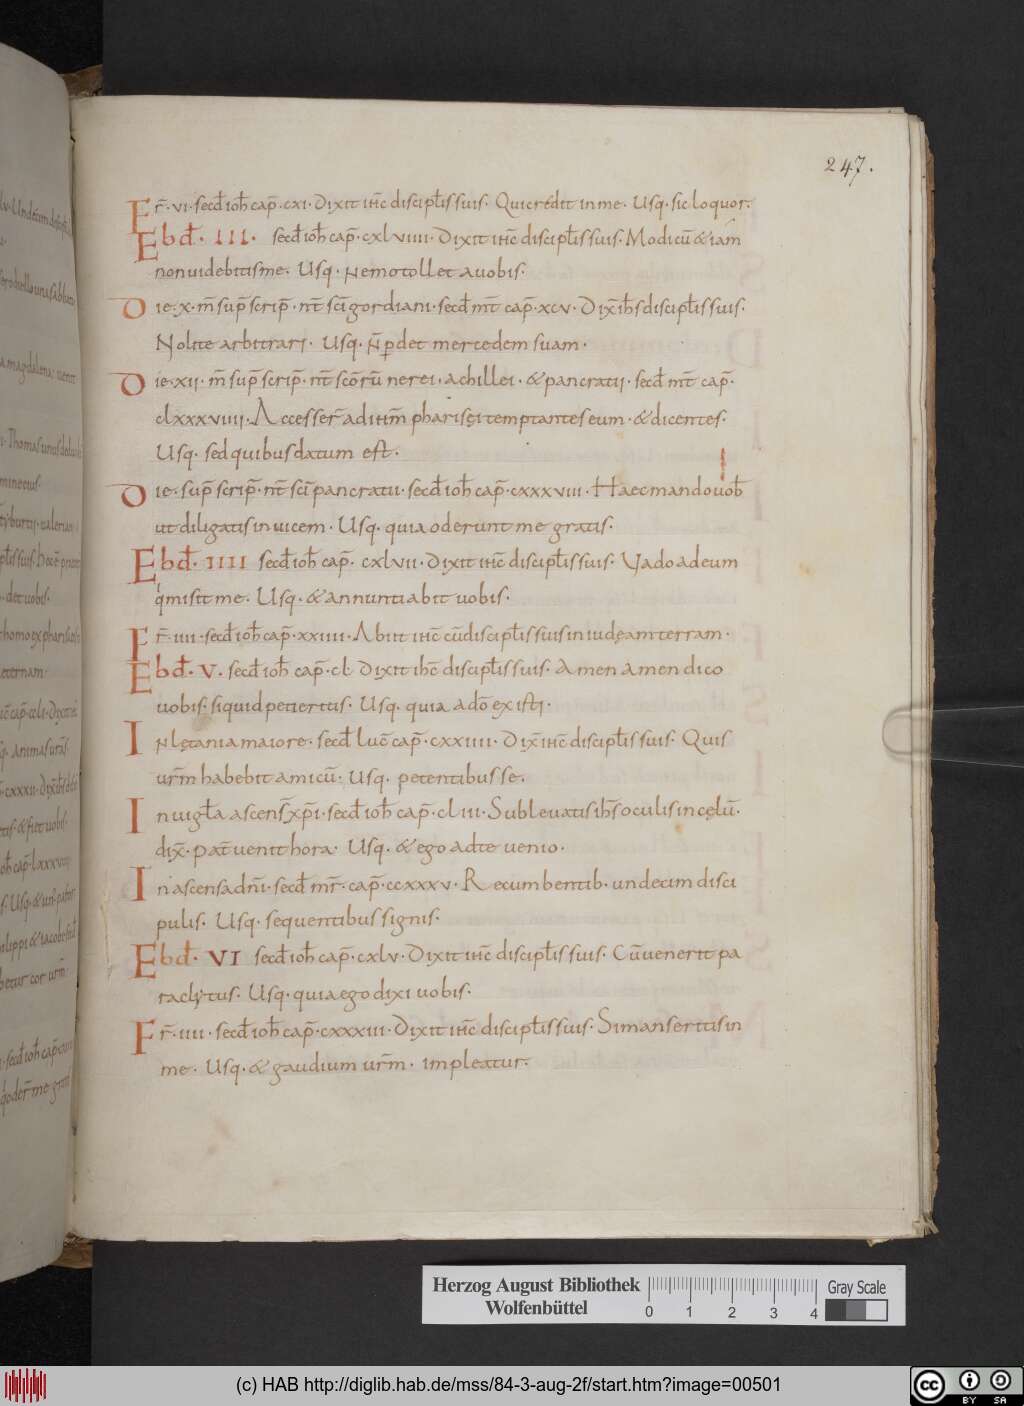 247.
Fr̄. vi. secd̄ ioh̄ cap̄. cxi. Dixit ih̄c discipl̄is suis. Qui credit in me. Usq. sic loquor.
Ebd̄. III. secd̄ ioh̄ cap̄. cxlviiii. Dixit ih̄c discipl̄is suis. Modicū & iam
non uidebitis me. Usq. Nemo tollet a uobis.
Die. x. m̄ sup̄ scrip̄. nt̄ sc̄i gordiani. secd̄ mt̄ cap̄. xcv. Dix̄ ih̄s discipl̄is suis.
Nolite arbitrari. Usq. N̄ p̱det mercedem suam.
Die. xii. m̄ sup̄ scrip̄. nt̄ sc̄orū nerei. achillei. & pancratii. secd̄ mt̄ cap̄.
clxxxviiii. Accesser̄ ad ih̄m pharisęi temptantes eum. & dicentes.
Usq. sed quibus datum est.
Die. sup̄ scrip̄. nt̄ sc̄i pancratii. secd̄ ioh̄ cap̄. cxxxviii. Haec mando uob̄
ut diligatis inuicem. Usq. quia oderunt me gratis.
Ebd̄. IIII secd̄ ioh̄ cap̄. cxlvii. Dixit ih̄c discipl̄is suis. Vado ad eum
q̇ misit me. Usq. & annuntiabit uobis.
Fr̄. iiii. secd̄ ioh̄ cap̄. xxiiii. Abiit ih̄c cū discipl̄is suis in iudęam terram.
Ebd̄. V. secd̄ ioh̄ cap̄. cl. Dixit ih̄c discipl̄is suis. Amen amen dico
uobis. si quid petieritis. Usq. quia a dō existi.
In lętania maiore. secd̄ luc̄ cap̄. cxxiiii. Dix̄ ih̄c discipl̄is suis. Quis
urm̄ habebit amicū. Usq. petentibus se.
In uigl̄a ascens̄ xp̄i. secd̄ ioh̄ cap̄. cliii. Subleuatis ih̄s oculis in cęlū.
dix̄. pat̄ uenit hora. Usq. & ego ad te uenio.
In ascensa dn̄i. secd̄ mr̄. cap̄. ccxxxv. Recumbentib. undecim disci
pulis. Usq. sequentibus signis.
Ebd̄. VI secd̄ ioh̄ cap̄. cxlv. Dixit ih̄c discipl̄is suis. Cū uenerit pa
raclytus. Usq. quia ego dixi uobis.
Fr̄. iiii. secd̄ ioh̄ cap̄. cxxxiii. Dixit ih̄c discipl̄is suis. Si manseritis in
me. Usq. & gaudium urm̄. impleatur.
Herzog August Bibliothek
Wolfenbüttel
0 1 2 3 4
Gray Scale
(c) HAB http://diglib.hab.de/mss/84-3-aug-2f/start.htm?image=00501
cc BY SA